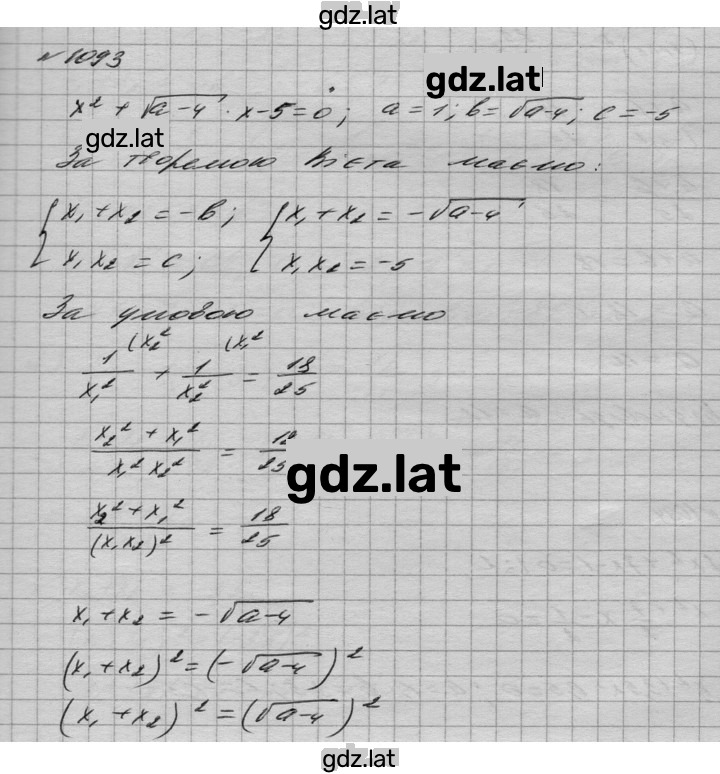 gdz.lat
№ 1093
gdz.lat
x² + √(a-4) · x - 5 = 0; a = 1; b = √(a-4); c = -5
gdz.lat
За теоремою Вієта маємо:
{ x₁ + x₂ = -b; { x₁ + x₂ = -√(a-4)
x₁x₂ = c; x₁x₂ = -5
За умовою маємо
(x₂² (x₁²
1/x₁² + 1/x₂² = 18/25
(x₂² + x₁²)/(x₁²x₂²) = 18/25
gdz.lat
(x₂² + x₁²)/(x₁x₂)² = 18/25
x₁ + x₂ = -√(a-4)
(x₁ + x₂)² = (-√(a-4))²
(x₁ + x₂)² = (√(a-4))²
gdz.lat